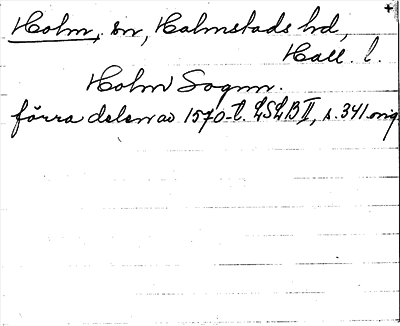 Holm, sn, Halmstads hd,
Hall. l.
Holm Sognn.
förra delen av 1570-t. LSLB II, s. 341 orig.